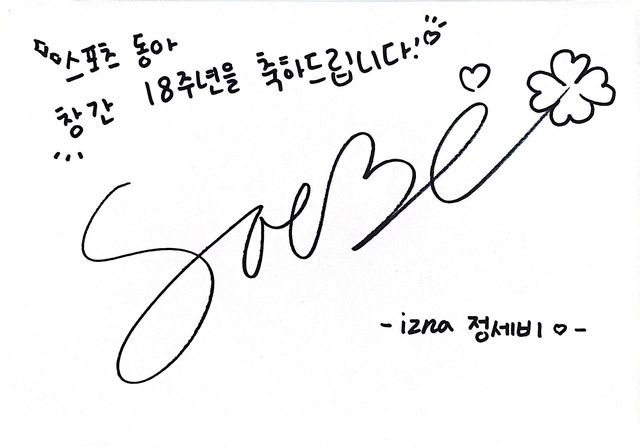 스포츠 동아
창간 18주년을 축하드립니다!
SaeBi
-izna 정세비♡-